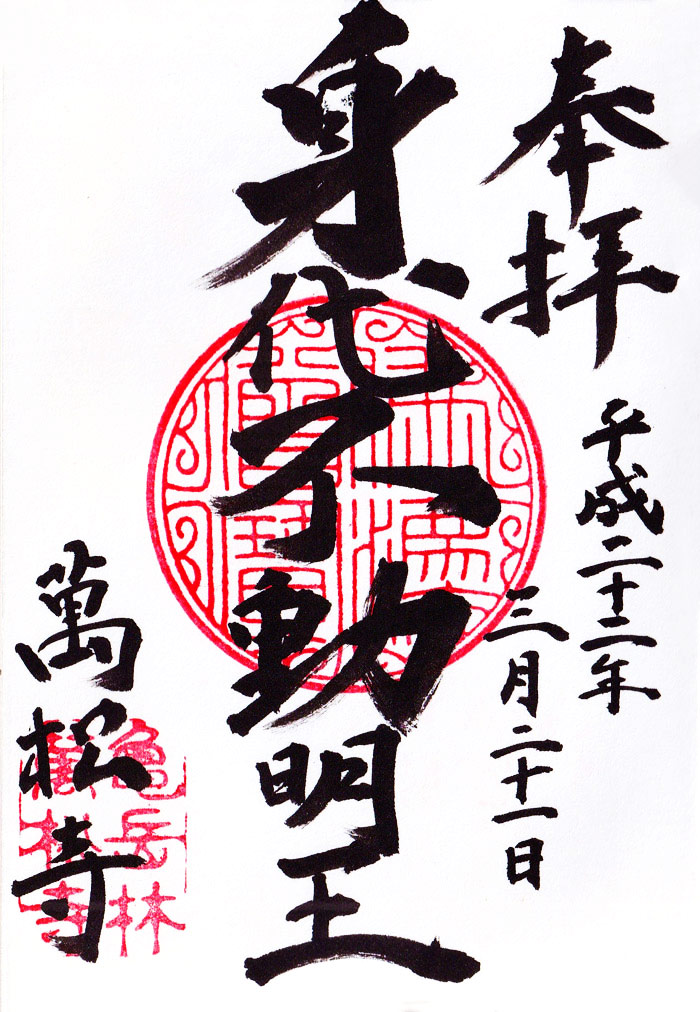 奉拝
平成二十二年
三月二十一日
身代不動明王
萬松寺
亀岳林
萬松寺